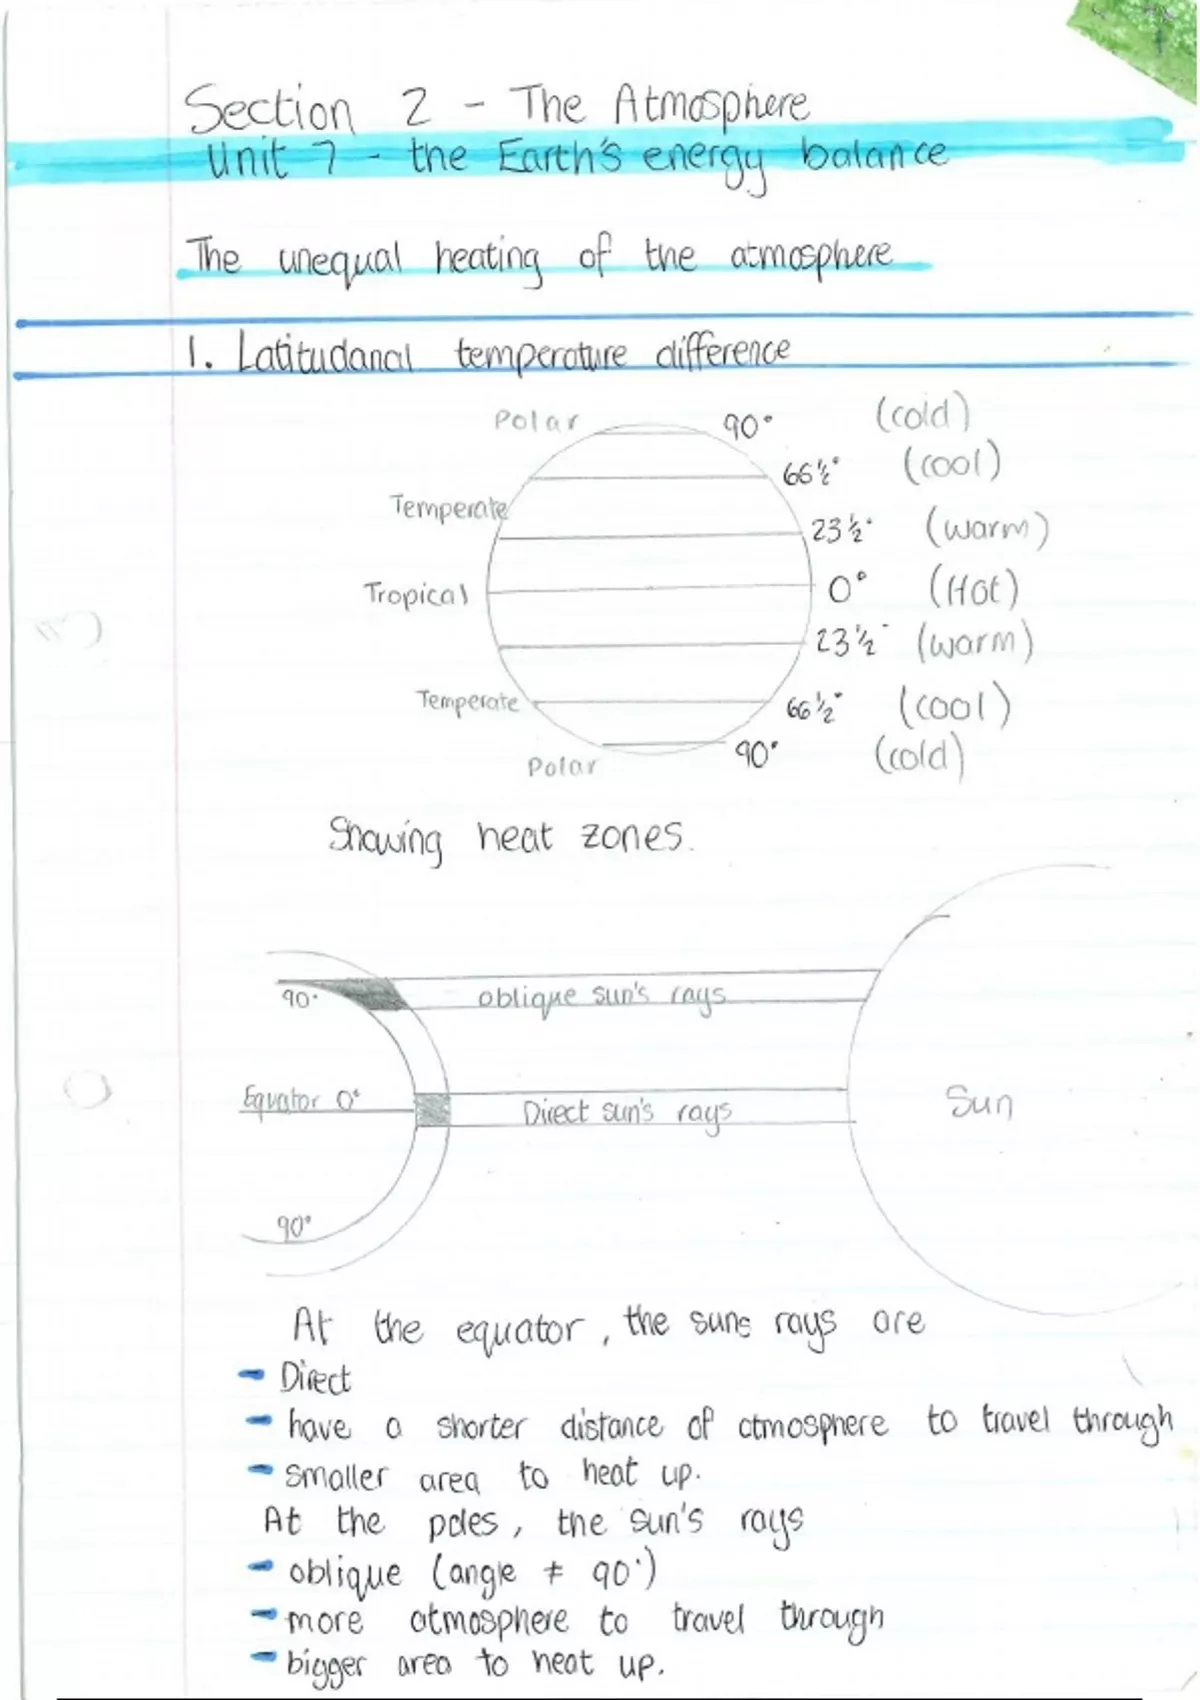 Section 2 - The Atmosphere
Unit 7 - the Earth's energy balance
The unequal heating of the atmosphere
1. Latitudanal temperature difference
Polar 90° (cold)
66½° (cool)
Temperate
23½° (warm)
Tropical 0° (Hot)
23½° (warm)
Temperate 66½° (cool)
Polar 90° (cold)
Showing heat zones.
90° oblique sun's rays
Equator 0° Direct sun's rays Sun
90°
At the equator, the suns rays are
- Direct
- have a shorter distance of atmosphere to travel through
- smaller area to heat up.
At the poles, the sun's rays
- oblique (angle ≠ 90°)
- more atmosphere to travel through
- bigger area to heat up.